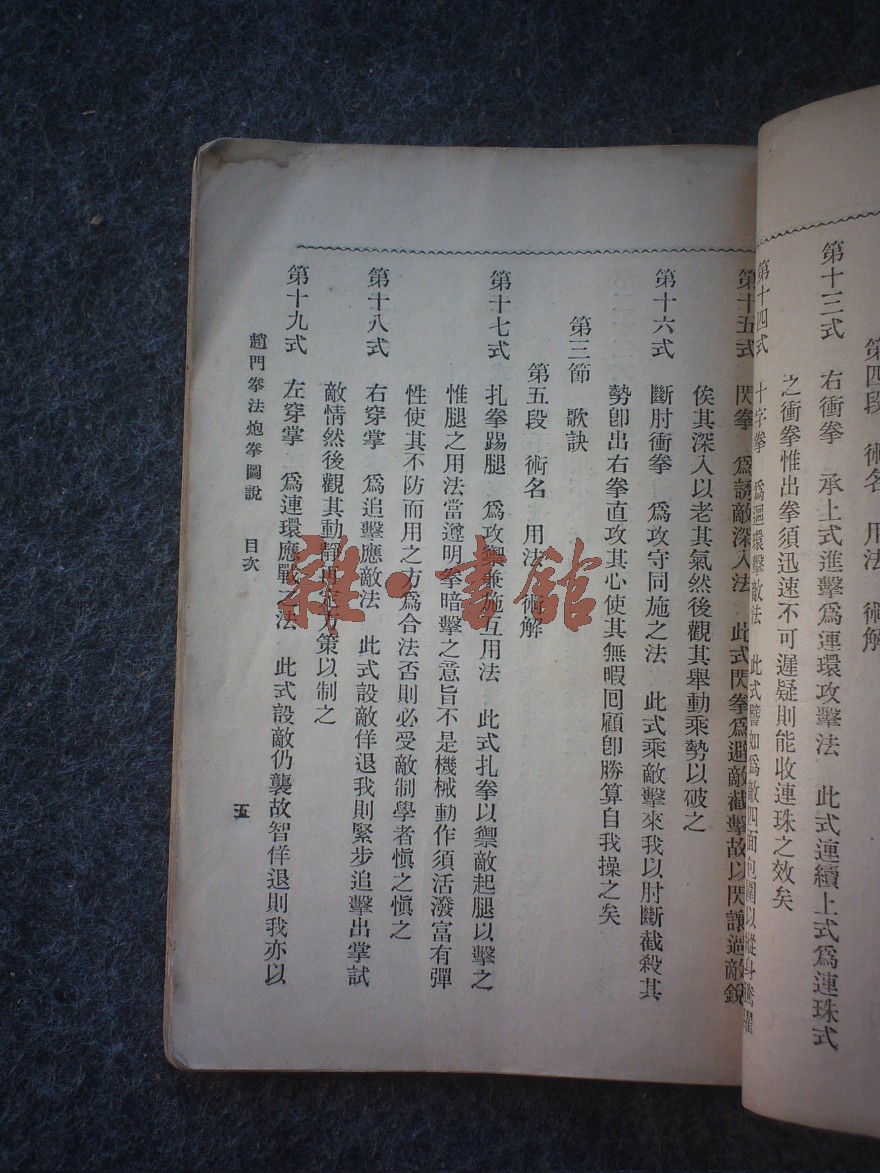 第四段　術名　用法　術解
第十三式　右衝拳　承上式進擊爲連環攻擊法　此式連續上式爲連珠式
之衝拳惟出拳須迅速不可遲疑則能收連珠之效矣
第十四式　十字拳　爲迴環擊敵法　此式譬如爲敵四面包圍以縱身騰躍
第十五式　閃拳　爲誘敵深入法　此式閃拳爲避敵截擊故以閃讓過敵銳
俟其深入以老其氣然後觀其舉動乘勢以破之
第十六式　斷肘衝拳　爲攻守同施之法　此式乘敵擊來我以肘斷截殺其
勢卽出右拳直攻其心使其無暇回顧卽勝算自我操之矣
第三節　歌訣
第五段　術名　用法　術解
第十七式　扎拳踢腿　爲攻禦兼施互用法　此式扎拳以禦敵起腿以擊之
惟腿之用法當遵明拳暗擊之意旨不是機械動作須活潑富有彈
性使其不防而用之方爲合法否則必受敵制學者愼之愼之
第十八式　右穿掌　爲追擊應敵法　此式設敵佯退我則緊步追擊出掌試
敵情然後觀其動靜再定方策以制之
第十九式　左穿掌　爲連環應戰之法　此式設敵仍襲故智佯退則我亦以
趙門拳法炮拳圖說　目次
五
雜·書館